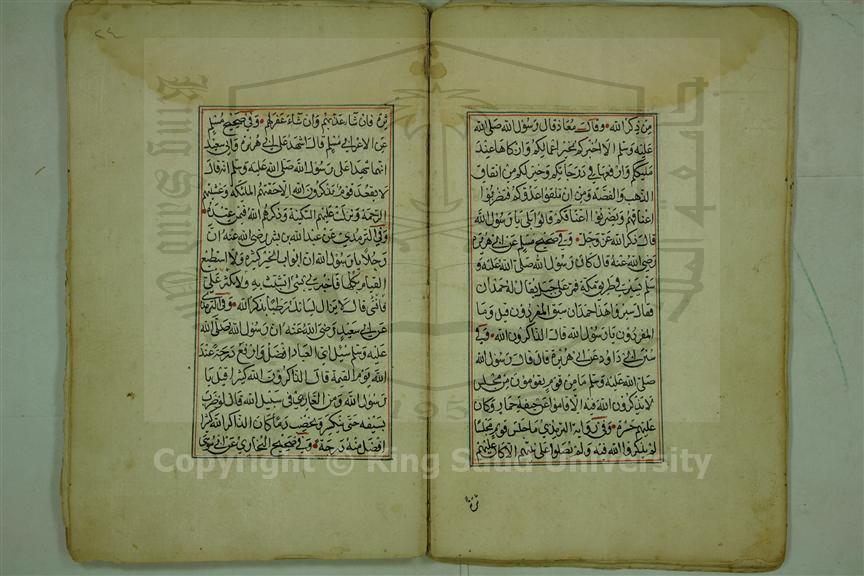 من ذكر الله وقال معاذ قال رسول الله صلى الله
عليه وسلم الا اخبركم بخير اعمالكم وازكاها عند
مليككم وارفعها في درجاتكم وخير لكم من انفاق
الذهب والفضة ومن ان تلقوا عدوكم فتضربوا
اعناقهم ويضربوا اعناقكم قالوا بلى يا رسول الله
قال ذكر الله عز وجل وفي صحيح مسلم عن ابي هريرة
رضي الله عنه قال كان رسول الله صلى الله عليه و
سلم يسير في طريق مكة فمر على جبل يقال له جمدان
فقال سيروا هذا جمدان سبق المفردون قيل وما
المفردون يا رسول الله قال الذاكرون الله وفي
سنن ابي داود عن ابي هريرة قال قال رسول الله
صلى الله عليه وسلم ما من قوم يقومون من مجلس
لا يذكرون الله فيه الا قاموا عن جيفة حمار وكان
عليهم حسرة وفي رواية الترمذي ما جلس قوم مجلسا
لم يذكروا الله فيه ولم يصلوا على نبيهم الا كان عليهم
ترة
٢٤
ترة فان شاء عذبهم وان شاء غفر لهم وفي صحيح مسلم
عن الاغر ابي مسلم قال اشهد على ابي هريرة وابي سعيد
انهما شهدا على رسول الله صلى الله عليه وسلم انه قال
لا يقعد قوم يذكرون الله الا حفتهم الملئكة وغشيتهم
الرحمة ونزلت عليهم السكينة وذكرهم الله فيمن عنده
وفي الترمذي عن عبد الله بن بشر رضي الله عنه ان
رجلا قال يا رسول الله ان ابواب الخير كثيرة ولا استطيع
القيام بكلها فاخبرني بشئ اتشبث به ولا تكثر علي
فانسى قال لا يزال لسانك رطبا بذكر الله وفي الترمذي
عن ابي سعيد رضي الله عنه ان رسول الله صلى الله
عليه وسلم سئل اي العباد افضل وارفع درجة عند
الله يوم القيمة قال الذاكرون الله كثيرا قيل يا
رسول الله ومن الغازي في سبيل الله قال لو ضرب
بسيفه حتى ينكسر ويختضب دما كان الذاكر الله كثيرا
افضل منه درجة وفي صحيح البخاري عن ابي موسى
Copyright © King Saud University
King Saud University
جامعة الملك سعود
1957